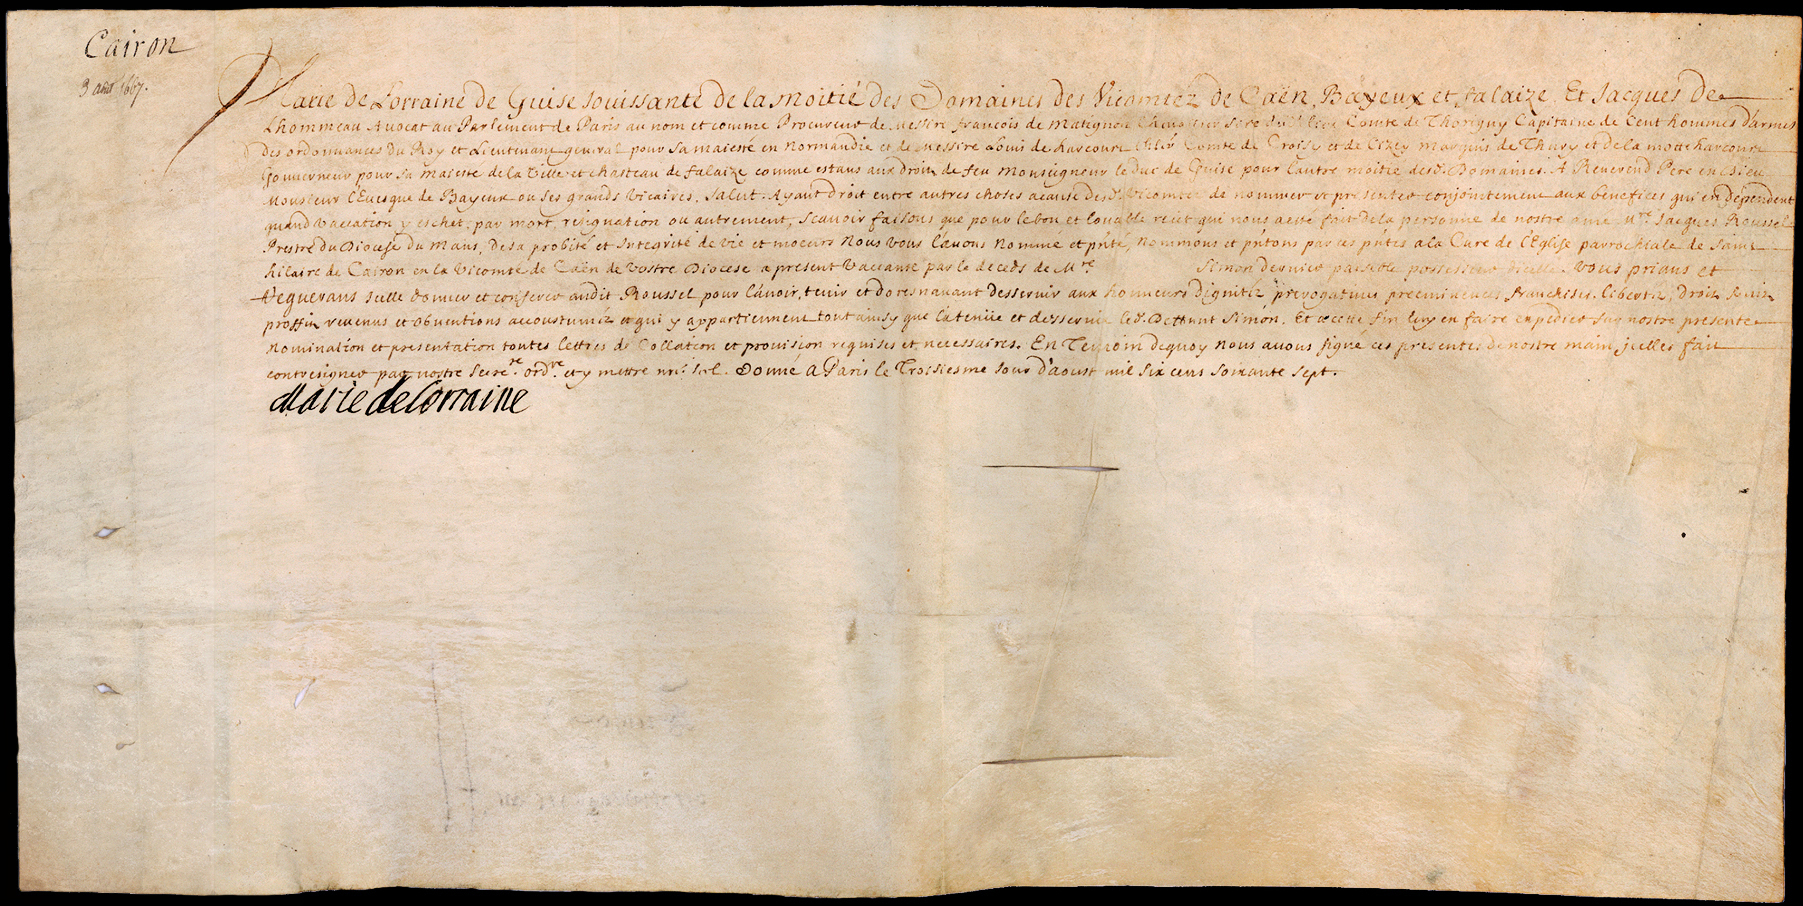 Cairon
3 aout 1667.
Marie de Lorraine de Guise Jouissante de la Moitié des Domaines des Vicomtéz de Caën, Bayeux et falaize. Et Jacques de
Lhommeau Avocat au Parlement de Paris au nom et comme Procureur de Messire françois de Matignon Comte de Thorigny Capitaine de Cent hommes d'armes
des ordonnances du Roy et Lieutenant general pour sa maiesté en Normandie et de Messire Louis de harcourt Comte de Croisy et de Cizey Marquis de Thury et de la motte harcourt
Gouverneur pour sa Maiesté de la Ville et chasteau de falaize comme estans aux droits de feu Monseigneur le duc de Guise pour l'autre moitié desd. Domaines. A Reverend Pere en Dieu
Monsieur l'Evesque de Bayeux ou ses grands Vicaires, Salut. Ayant droit entre autres choses acause desd. Vicomtez de nommer et presenter conjointement aux benefices qui en dépendent
quand vaccation y eschet, par mort, resignation ou autrement, Scavoir faisons que pour le bon et louable recit qui nous a esté fait de la personne de nostre amé Mre. Jacques Roussel
Prestre du Diocese du Mans, de sa probité et Integrité de vie et moeurs Nous vous l'avons Nommé et pnté, Nommons et pntons par ces pntes a la Cure de l'Eglise parrochiale de saint
hilaire de Cairon en la Vicomté de Caën de vostre Diocese a present Vaccante par le deceds de Mre Simon dernier paisible possesseur d'icelle. Vous prians et
Requerans icelle donner et conferer audit Roussel pour l'avoir, tenir et doresnavant desservir aux honneurs dignitéz prerogatives preeminences franchises, libertéz, droits fruits
proffits revenus et obventions accoustuméz et qui y appartiennent tout ainsy que l'a tenüe et desservie led. Deffunt Simon. Et a cette fin luy en faire expedier sur nostre presente
Nomination et presentation toutes lettres de Collation et provision requises et necessaires. En Temoin dequoy Nous avons signé ces presentes de nostre main, icelles fait
contresigner par nostre Secre. ordre. et y mettre nre. scel. Donné A Paris le Troisiesme Jour d'aoust mil six cens soixante sept.
Marie de Lorraine